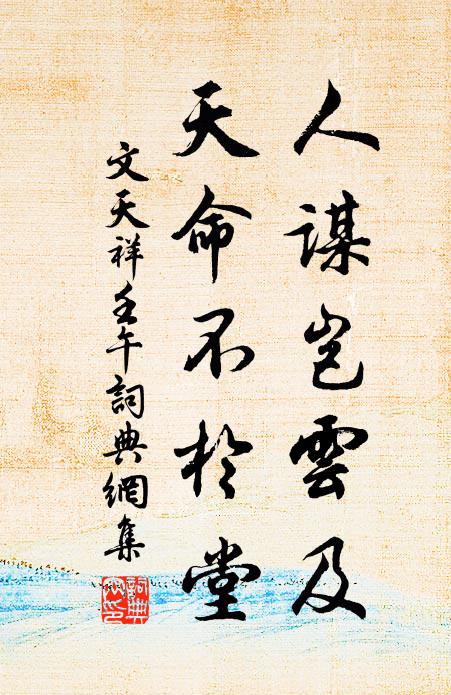 人謀豈雲及
天命不於堂
文天祥壬午詞典網集